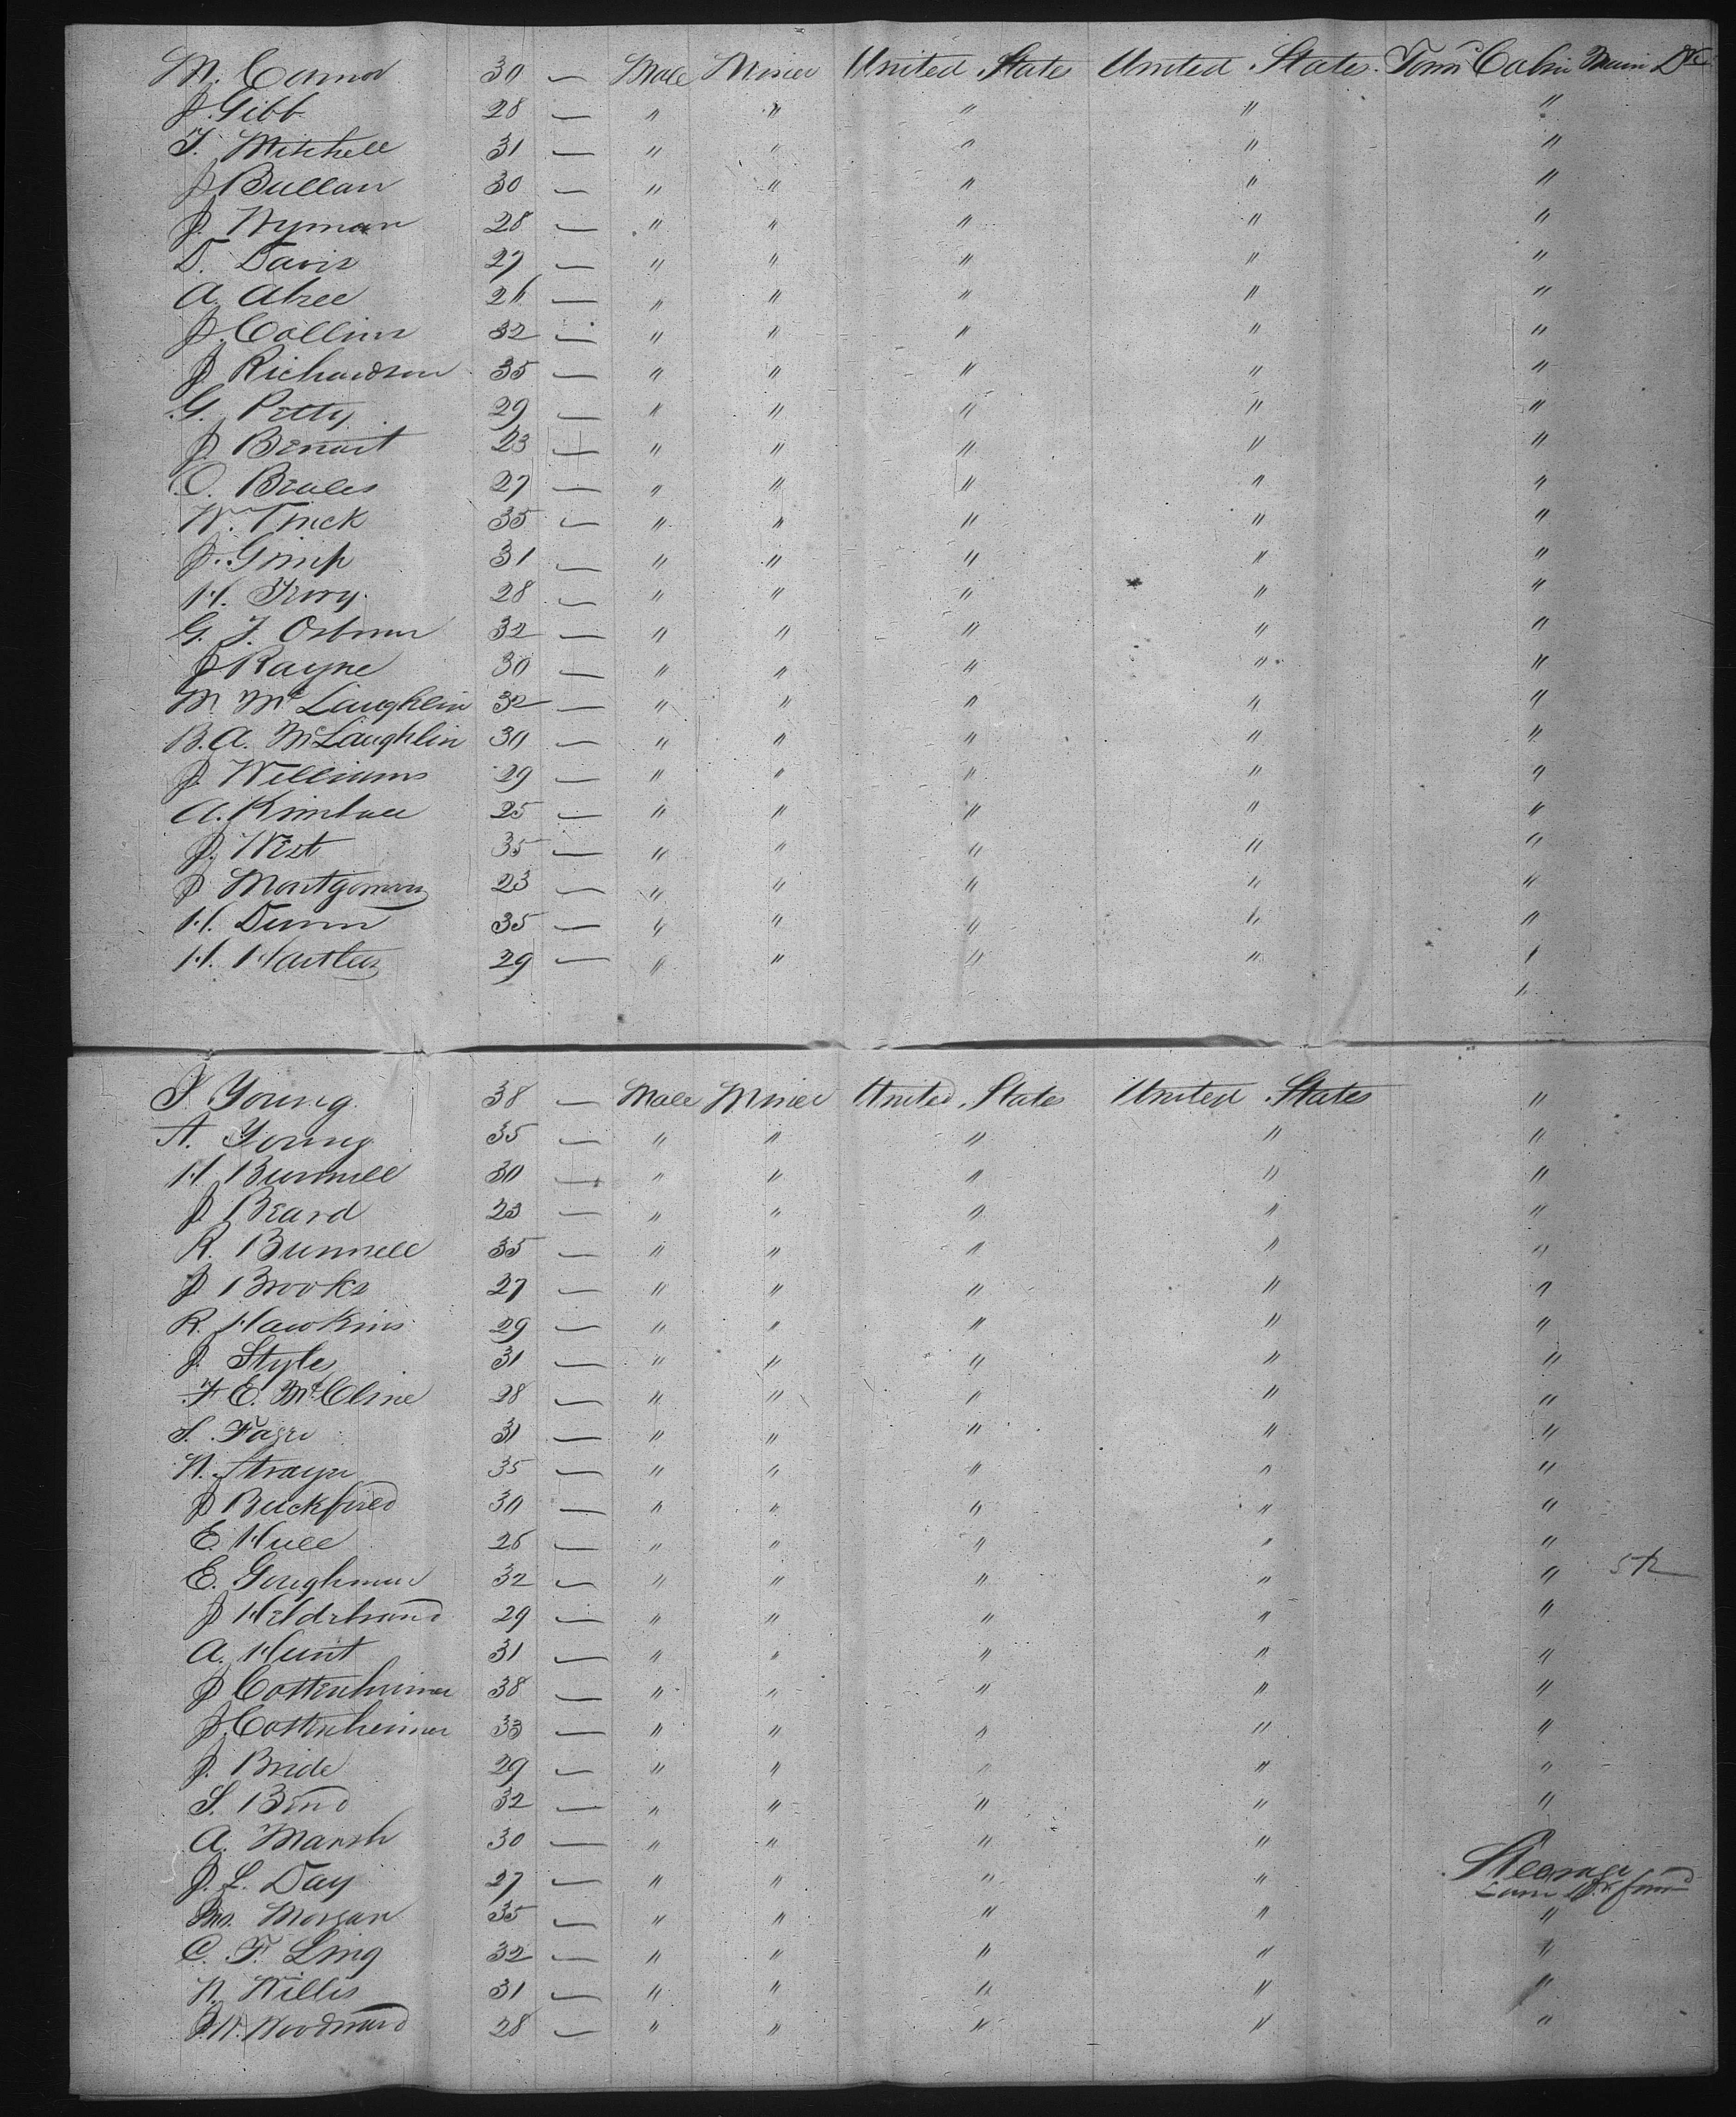 M. Connor 30 — Male Miner United States United States Forwd Cabin Main Dk
J. Gibb 28 — " " " " "
T. Mitchell 31 — " " " " "
J Bullan 30 — " " " " "
J. Wyman 28 — " " " " "
D. Davis 27 — " " " " "
A. Atree 26 — " " " " "
J. Collins 32 — " " " " "
J Richardson 35 — " " " " "
G. Petty 29 — " " " " "
J. Benart 23 — " " " " "
O. Beales 27 — " " " " "
W. Trick 35 — " " " " "
J. Gimp 31 — " " " " "
H. Ivory 28 — " " " " "
G. J. Osborne 32 — " " " " "
J Rayne 30 — " " " " "
M McLaughlin 32 — " " " " "
B. A. McLaughlin 30 — " " " " "
J. Williams 29 — " " " " "
A. Kimball 25 — " " " " "
J. West 35 — " " " " "
J Montgomery 23 — " " " " "
H. Dunn 35 — " " " " "
H. Hartley 29 — " " " " "
"
T. Young 38 — Male Miner United States United States "
A. Young 35 — " " " " "
H. Bunnell 30 — " " " " "
J Beard 23 — " " " " "
R. Bunnell 35 — " " " " "
J Brooks 27 — " " " " "
R. Hawkins 29 — " " " " "
J. Styles 31 — " " " " "
F E. McCline 28 — " " " " "
S. 31 — " " " " "
N. Strayer 35 — " " " " "
J Buckford 30 — " " " " "
E. Hull 26 — " " " " "
E. Goughman 32 — " " " " "
J Hildebrand 29 — " " " " "
A. Hunt 31 — " " " " "
J Cottenheimer 38 — " " " " "
J. Cottenheimer 33 — " " " " "
J. Bride 29 — " " " " "
S. Bend 32 — " " " " "
A. Marsh 30 — " " " "
J. L. Day 27 — " " " " Steerage
Jno. Morgan 35 — " " " " "
C. F. Ling 32 — " " " " "
N. Willis 31 — " " " " "
J. W. Woodward 28 — " " " " "